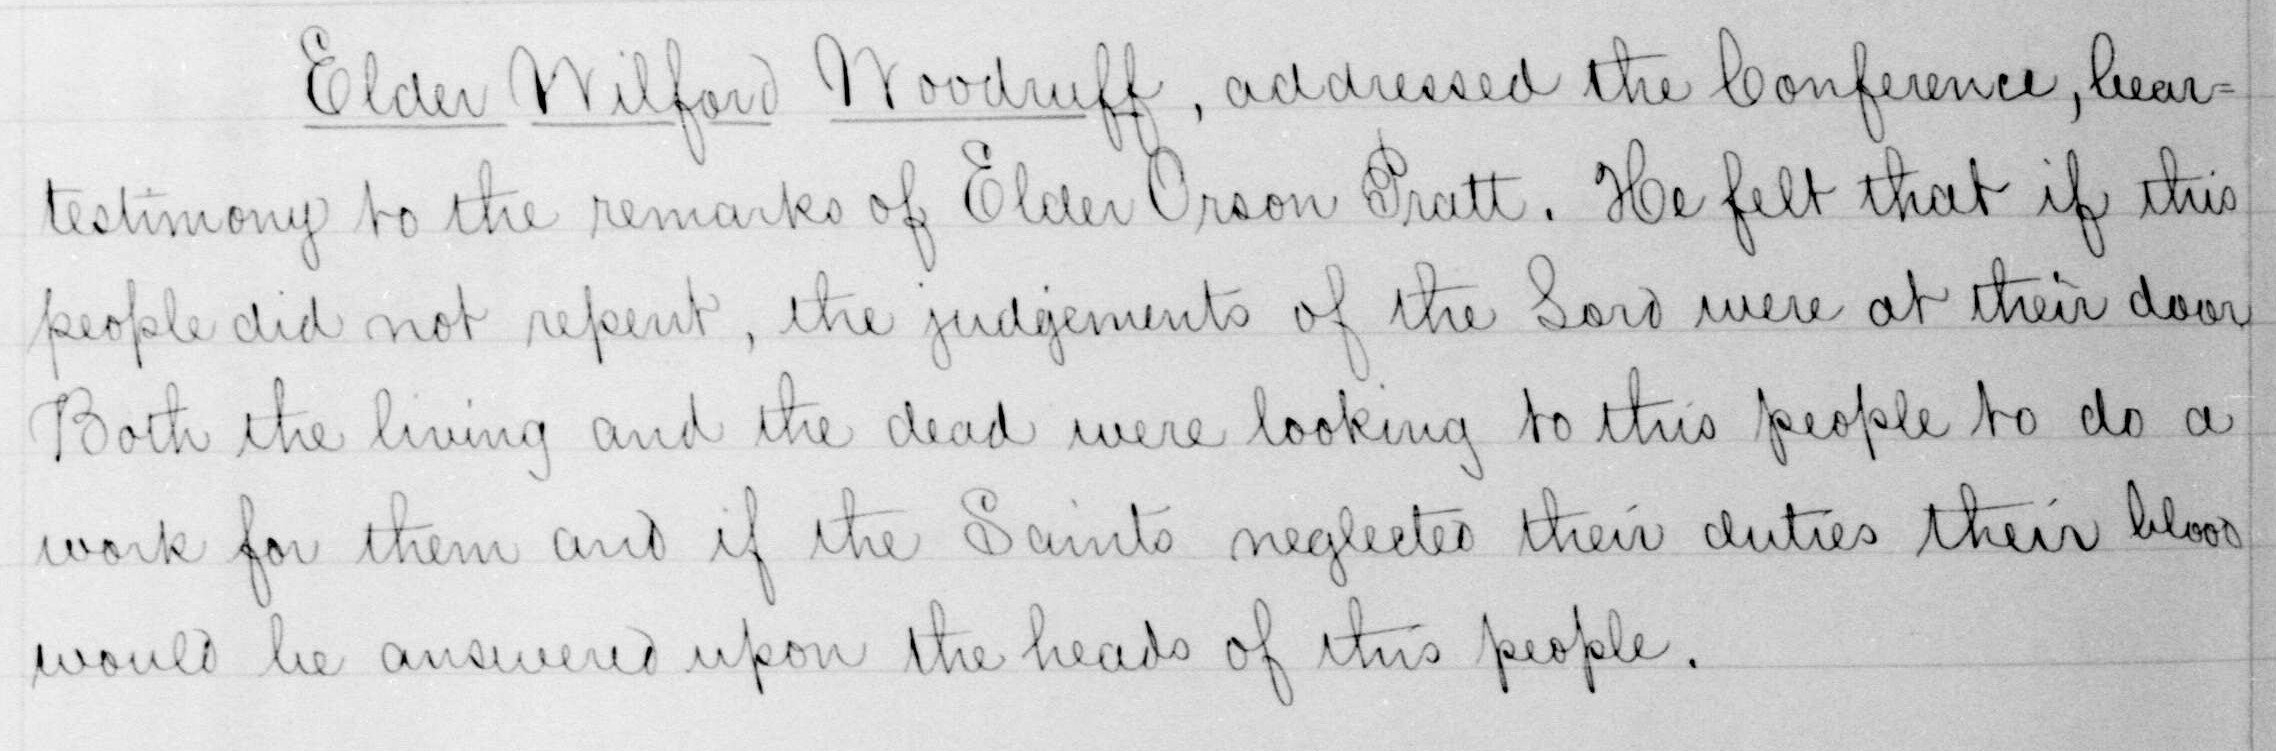 Elder Wilford Woodruff, addressed the Conference, bear=
testimony to the remarks of Elder Orson Pratt. He felt that if this
people did not repent, the judgements of the Lord were at their door
Both the living and the dead were looking to this people to do a
work for them and if the Saints neglected their duties their blood
would be answered upon the heads of this people.